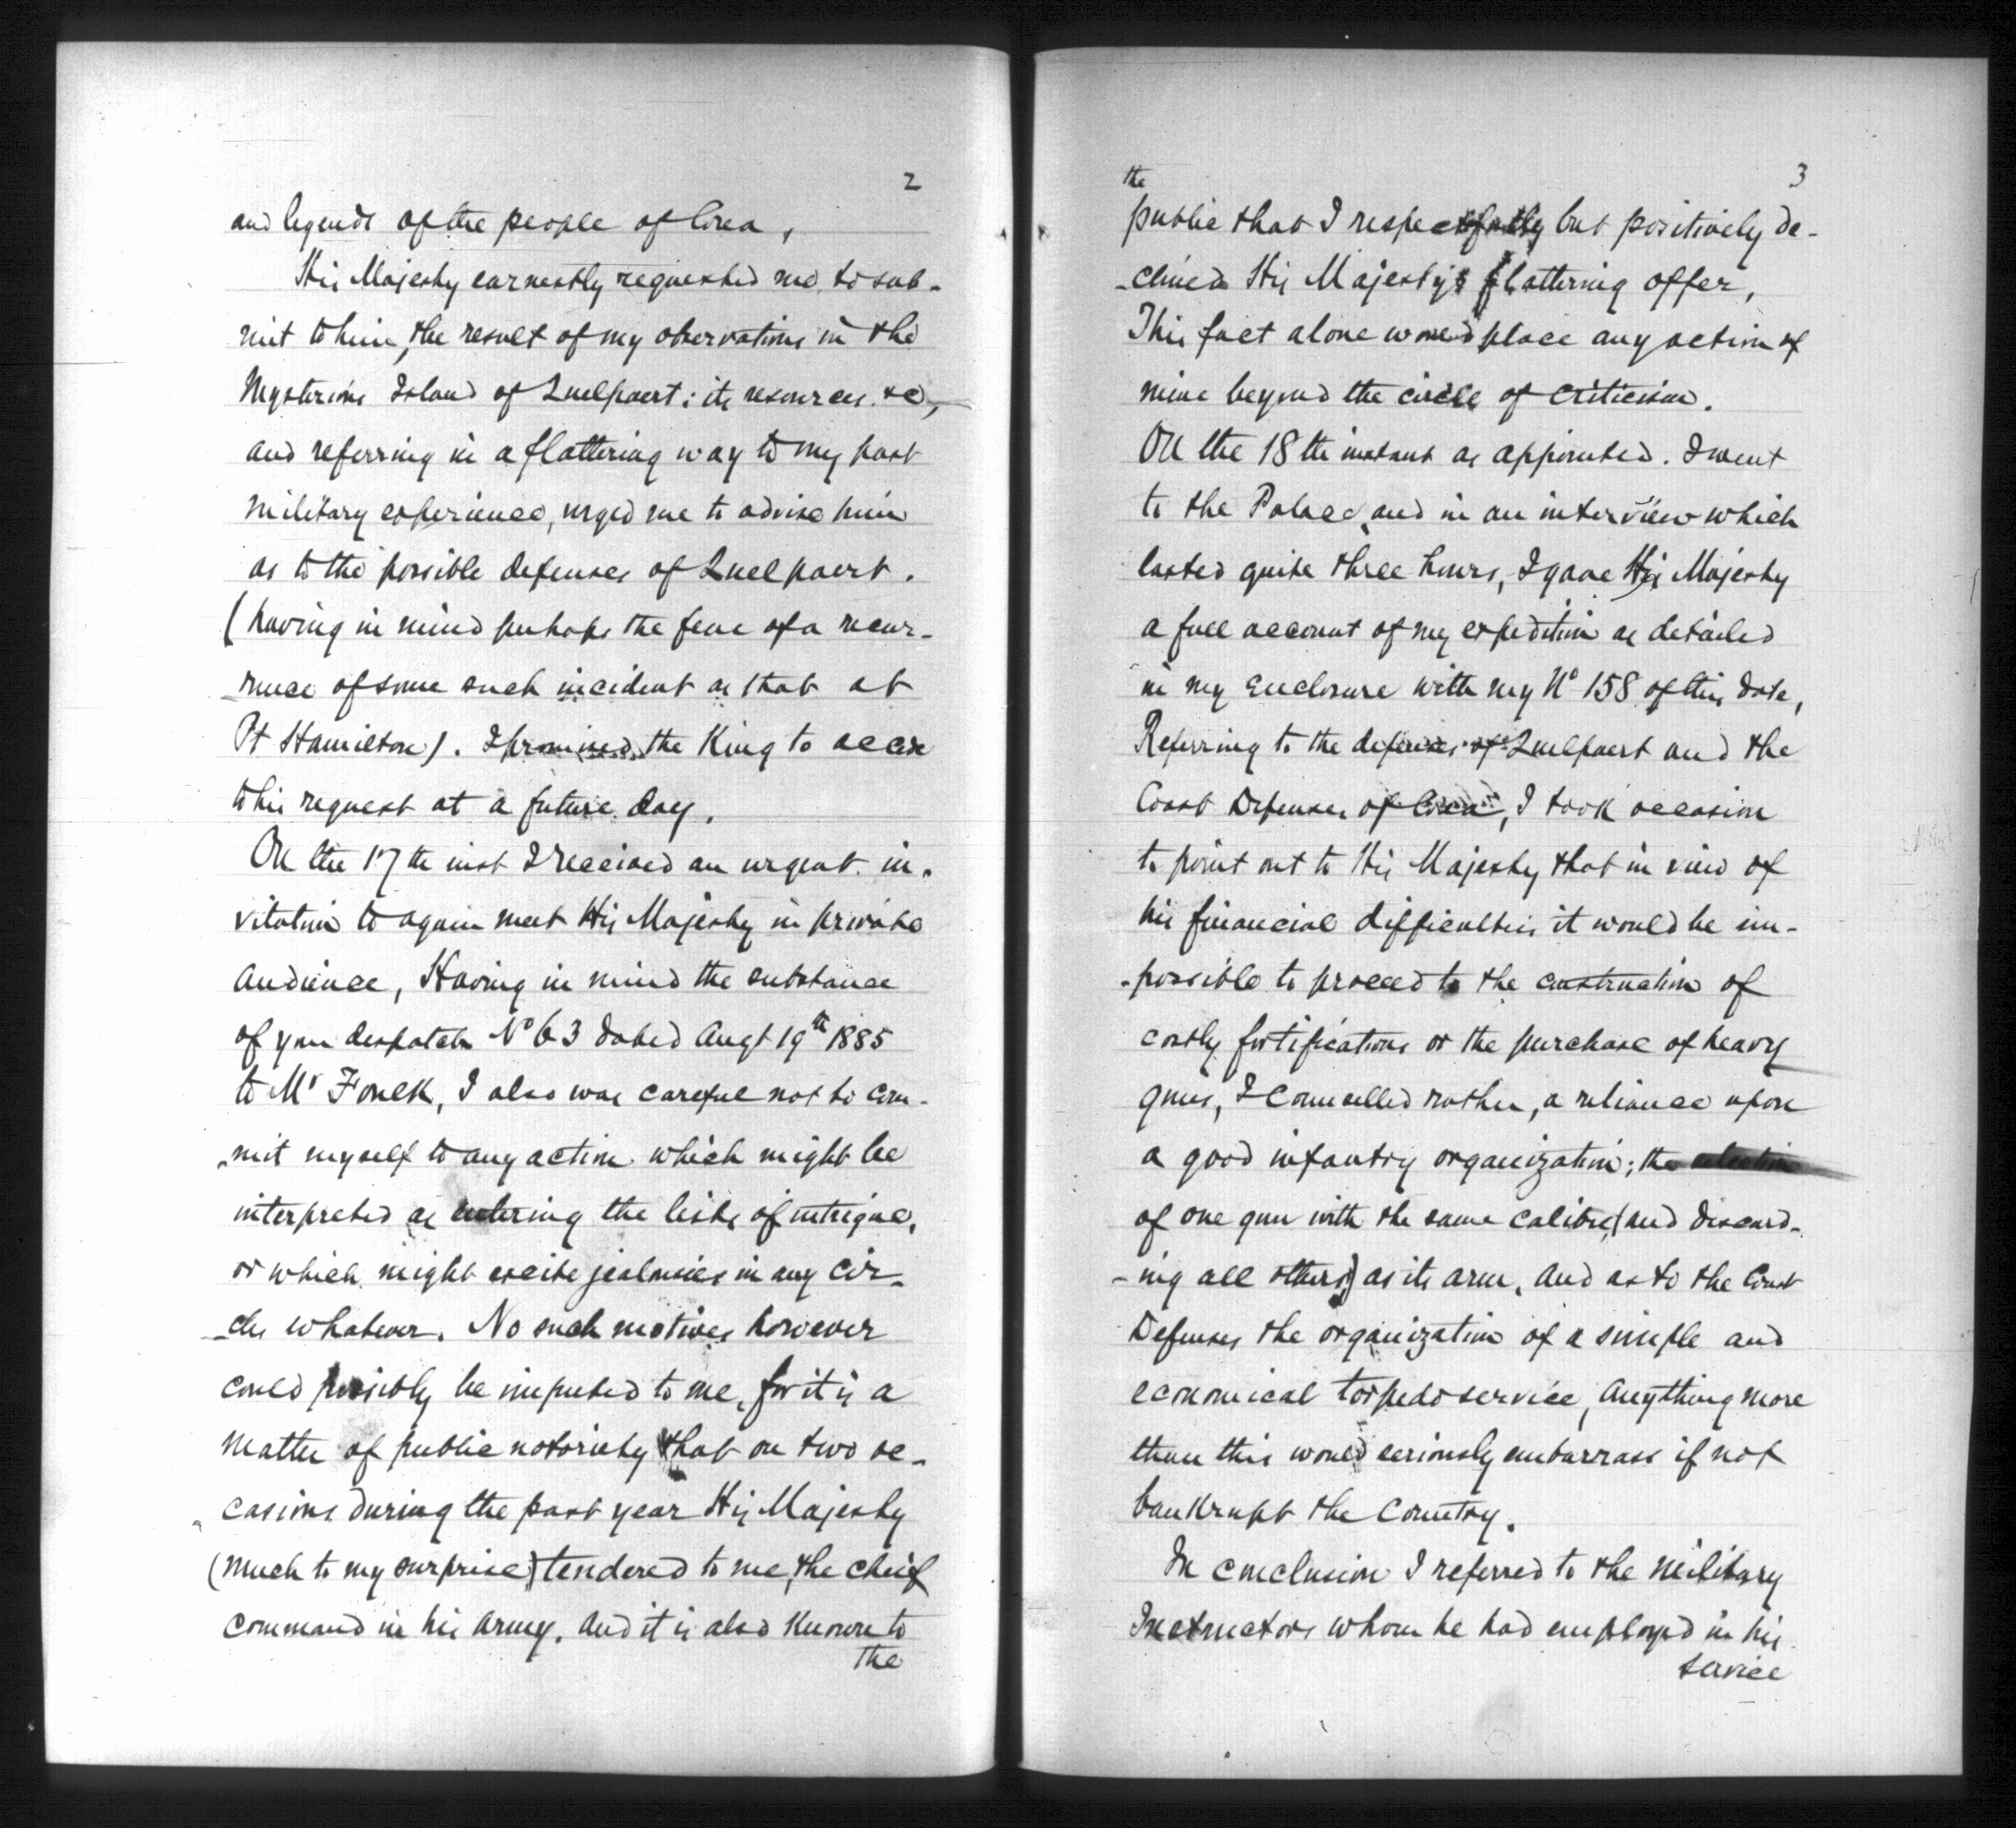 2
and legends of the people of Corea,
His Majesty earnestly requested me to sub-
mit to him, the result of my observations in the
Mysterious Island of Quelpaert: its resources &c,
and referring in a flattering way to my past
military experience, urged me to advise him
as to the possible defenses of Quelpaert.
(having in mind perhaps the fear of a recur-
-rence of some such incident as that at
Pt Hamilton). I promised the King to accede
to his request at a future day.
On the 17th inst I received an urgent in-
vitation to again meet His Majesty in private
audience, Having in mind the substance
of your despatch No 63 dated Augt 19th 1885
to Mr Foulk, I also was careful not to com-
-mit myself to any action which might be
interpreted as entering the lists of intrigue,
or which might excite jealousies in any cir-
-cles whatever. No such motives however
could possibly be imputed to me, for it is a
matter of public notoriety that on two oc-
casions during the past year His Majesty
(much to my surprise) tendered to me, the chief
command in his army. And it is also known to
the
3
the
public that I respectfully but positively de-
-clined His Majesty's flattering offer,
This fact alone would place any action of
mine beyond the circle of criticism.
On the 18th instant as appointed. I went
to the Palace, and in an interview which
lasted quite three hours, I gave His Majesty
a full account of my expedition as detailed
in my enclosure with my No 158 of this date,
Referring to the defenses of Quelpaert and the
Coast Defenses of Corea, I took occasion
to point out to His Majesty that in view of
his financial difficulties it would be im-
-possible to proceed to the construction of
costly fortifications or the purchase of heavy
guns, I counselled rather, a reliance upon
a good infantry organization; the selection
of one gun with the same calibre, (and discard-
-ing all others) as its arm. And as to the Coast
Defenses the organization of a simple and
economical torpedo service, Anything more
than this would seriously embarrass if not
bankrupt the Country.
In conclusion I referred to the Military
Instructors whom he had employed in his
service